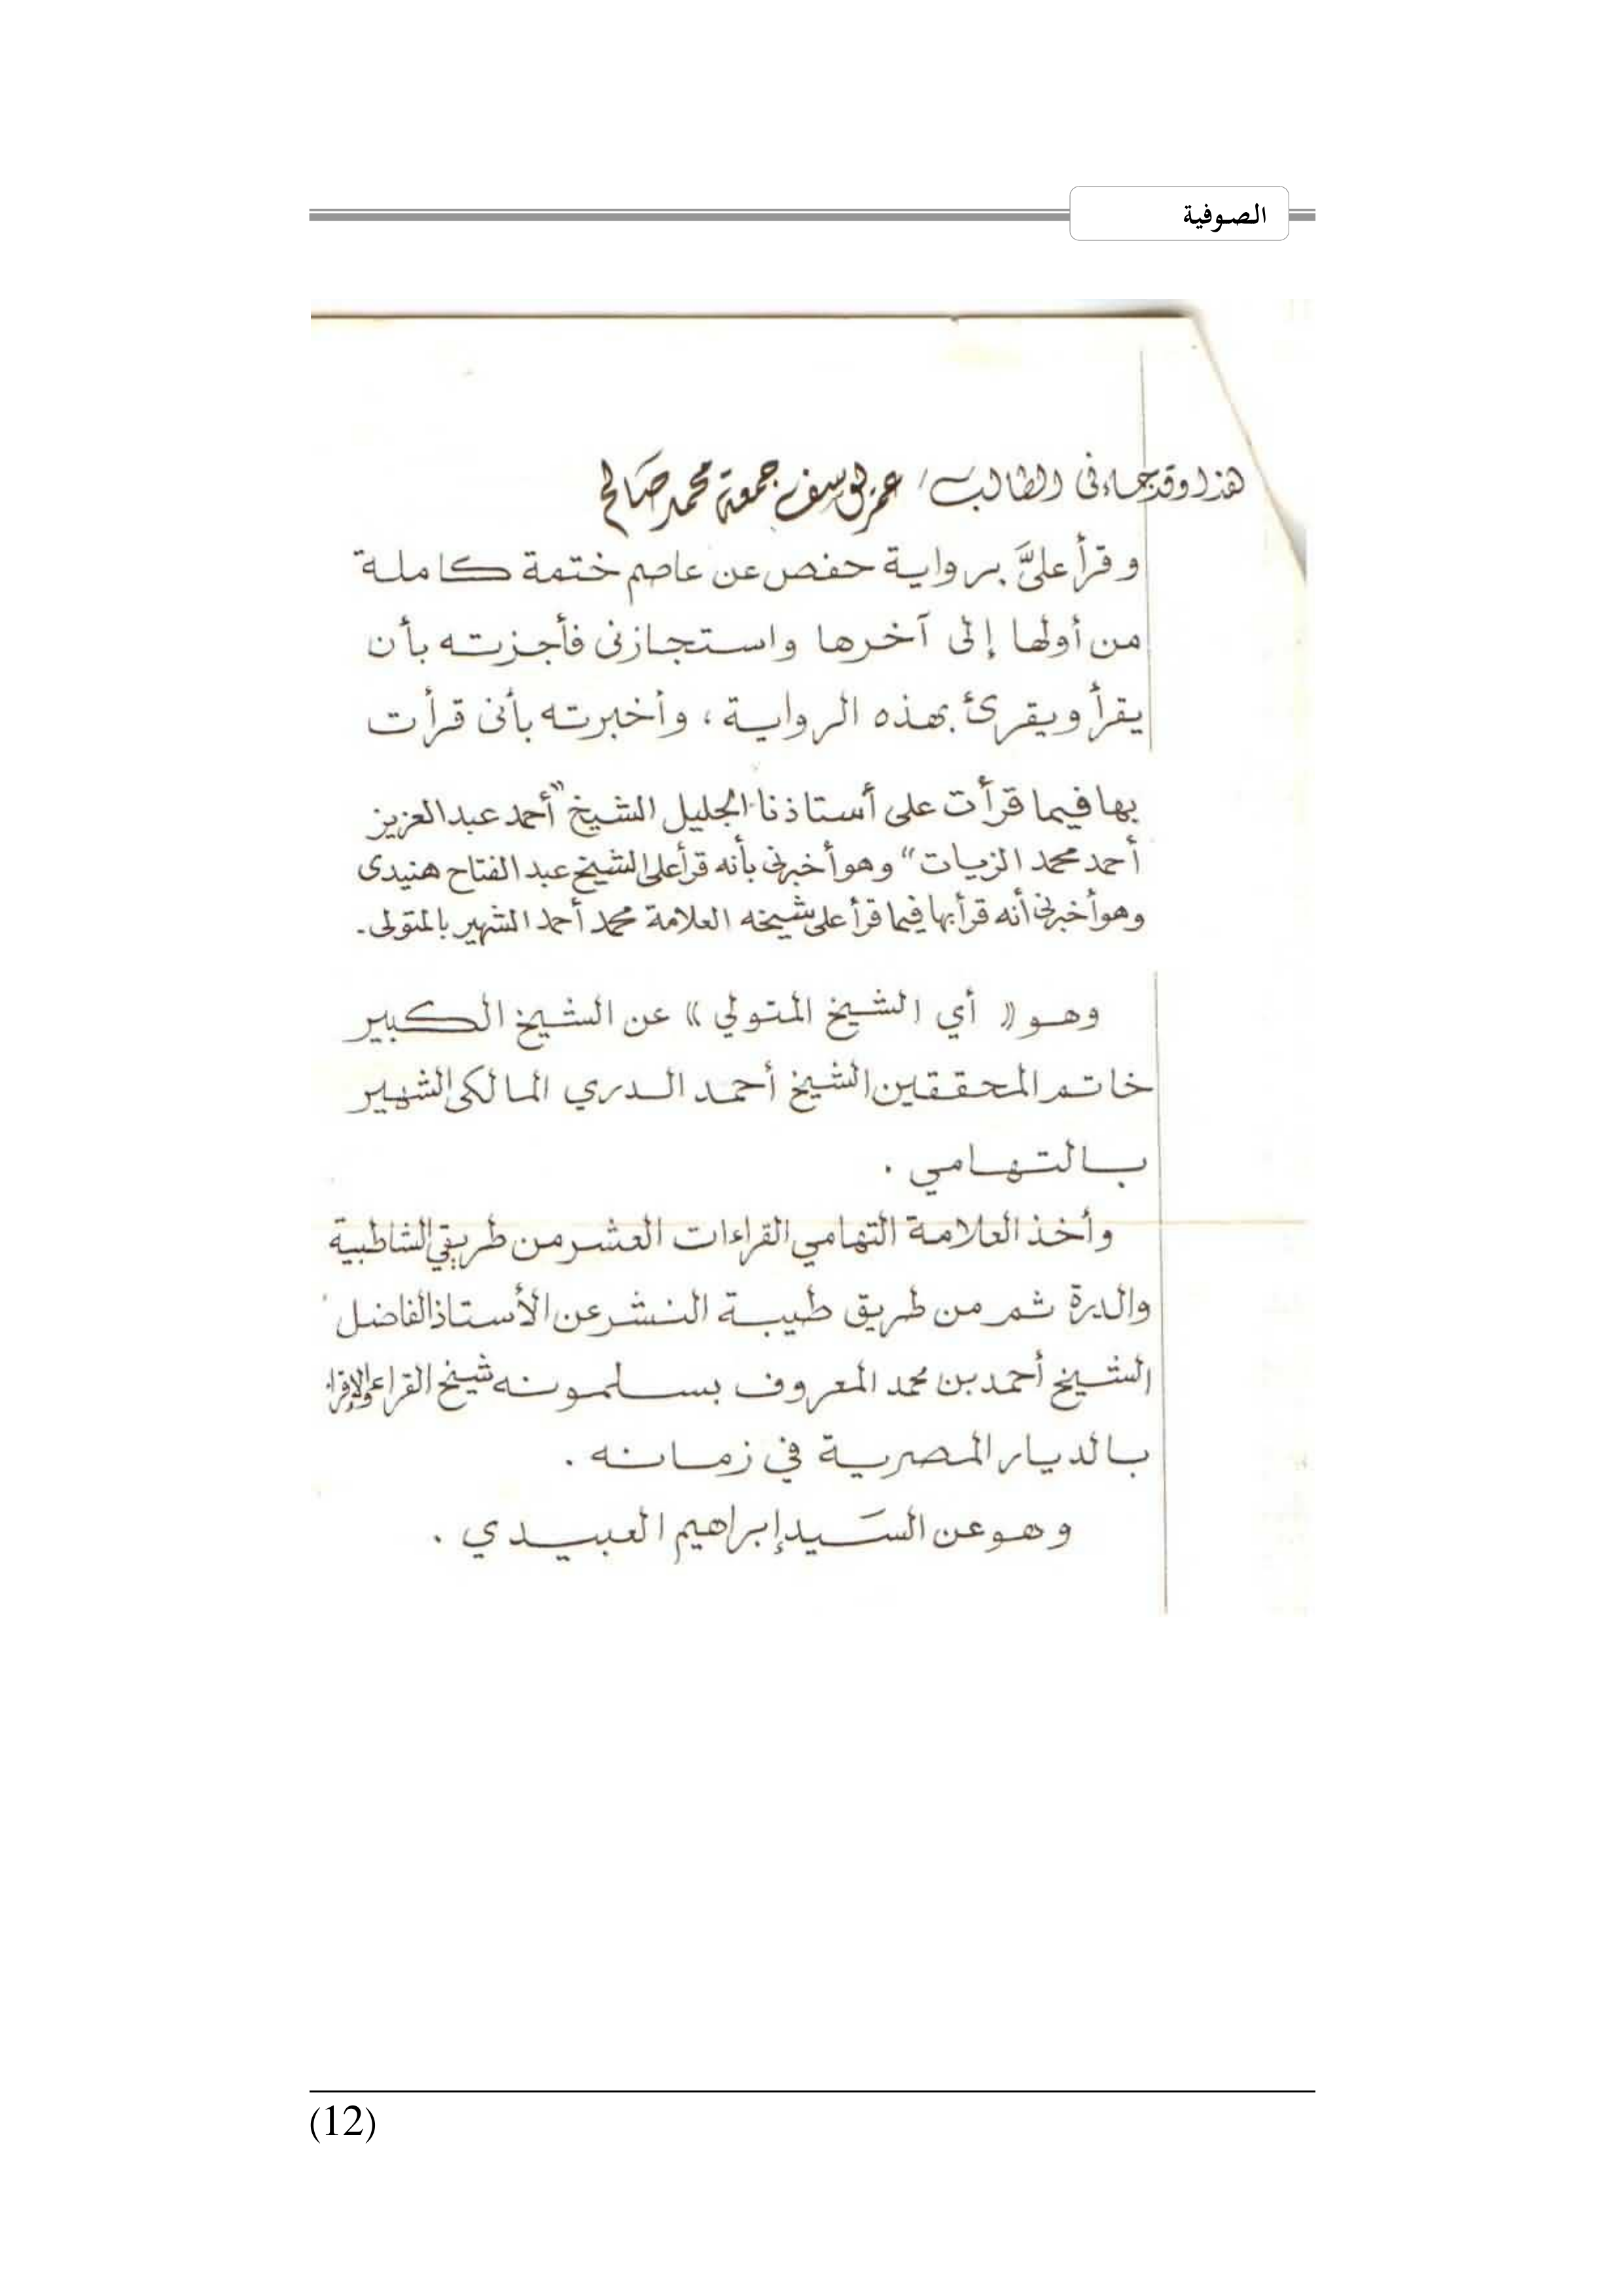 الصوفية
هذا وقد جاءنى الطالب / عمر يوسف جمعة محمد صالح
وقرأ علىَّ برواية حفص عن عاصم ختمة كاملة
من أولها إلى آخرها واستجازنى فأجزته بأن
يقرأ ويقرئ بهذه الرواية ، وأخبرته بأنى قرأت
بها فيما قرأت على أستاذنا الجليل الشيخ "أحمد عبد العزيز
أحمد محمد الزيات" وهو أخبرنى بأنه قرأ على الشيخ عبد الفتاح هنيدى
وهو أخبرنى أنه قرأ بها فيما قرأ على شيخه العلامة محمد أحمد الشهير بالمتولى .
وهو (( أي الشيخ المتولي )) عن الشيخ الكبير
خاتم المحققين الشيخ أحمد الدري المالكى الشهير
بالتهامي .
وأخذ العلامة التهامي القراءات العشر من طريقي الشاطبية
والدرة ثم من طريق طيبة النشر عن الأستاذ الفاضل
الشيخ أحمد بن محمد المعروف بسلمونه شيخ القراء والإقراء
بالديار المصرية في زمانه .
وهو عن السَيد إبراهيم العبيدي .
(12)